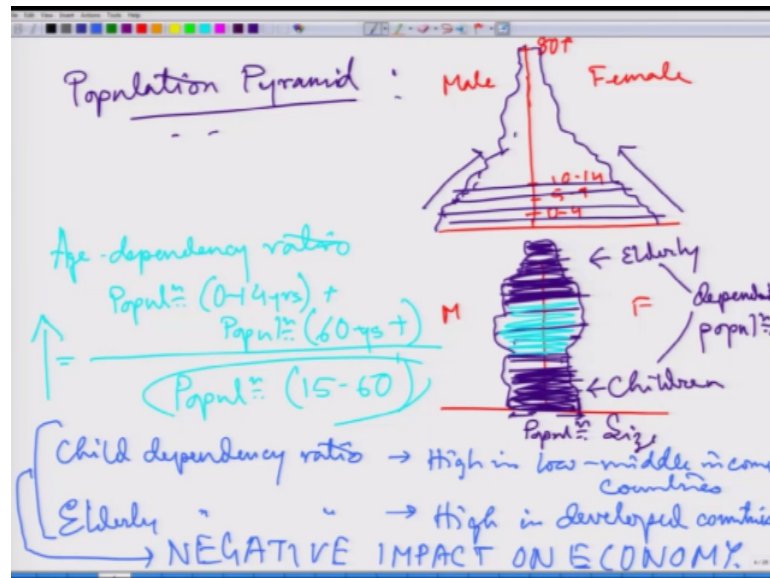 Population Pyramid :
Male
Female
80+
10-14
5-9
0-4
Age-dependency ratio
Populⁿ (0-14yrs) +
Populⁿ (60-ys+)
=
Populⁿ (15-60)
M
F
← Elderly
dependen
populⁿ
← Children
Populⁿ Size
Child dependency ratio → High in low-middle income
countries
Elderly " " → High in developed countries
→ NEGATIVE IMPACT ON ECONOMY.